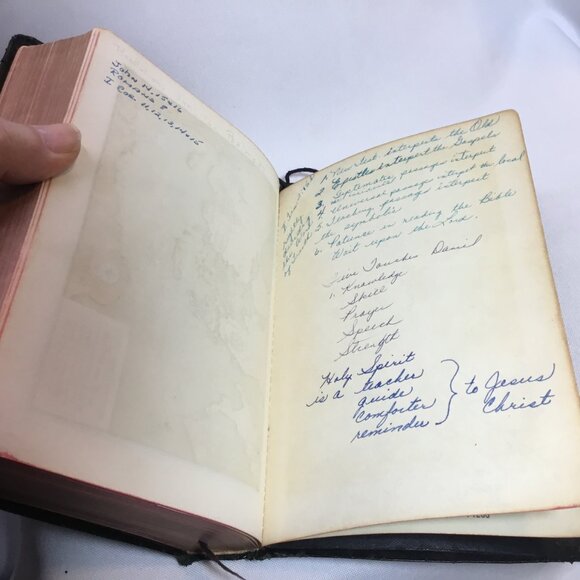 John 14.15+16
Romans 8
I Cor. 11, 12, 13, 14+15
1. A New Test. interprets the Old
2. Epistles interpret the Gospels
3. Systematic passages interpret
4. Universal passages interpret the local
5. Teaching passages interpret
the symbolic
6. Patience in reading the Bible
Wait upon the Lord.
Five Touches Daniel
1. Knowledge
Skill
Prayer
Speech
Strength
Holy Spirit
is a teacher
guide
comforter
reminder
to Jesus
Christ